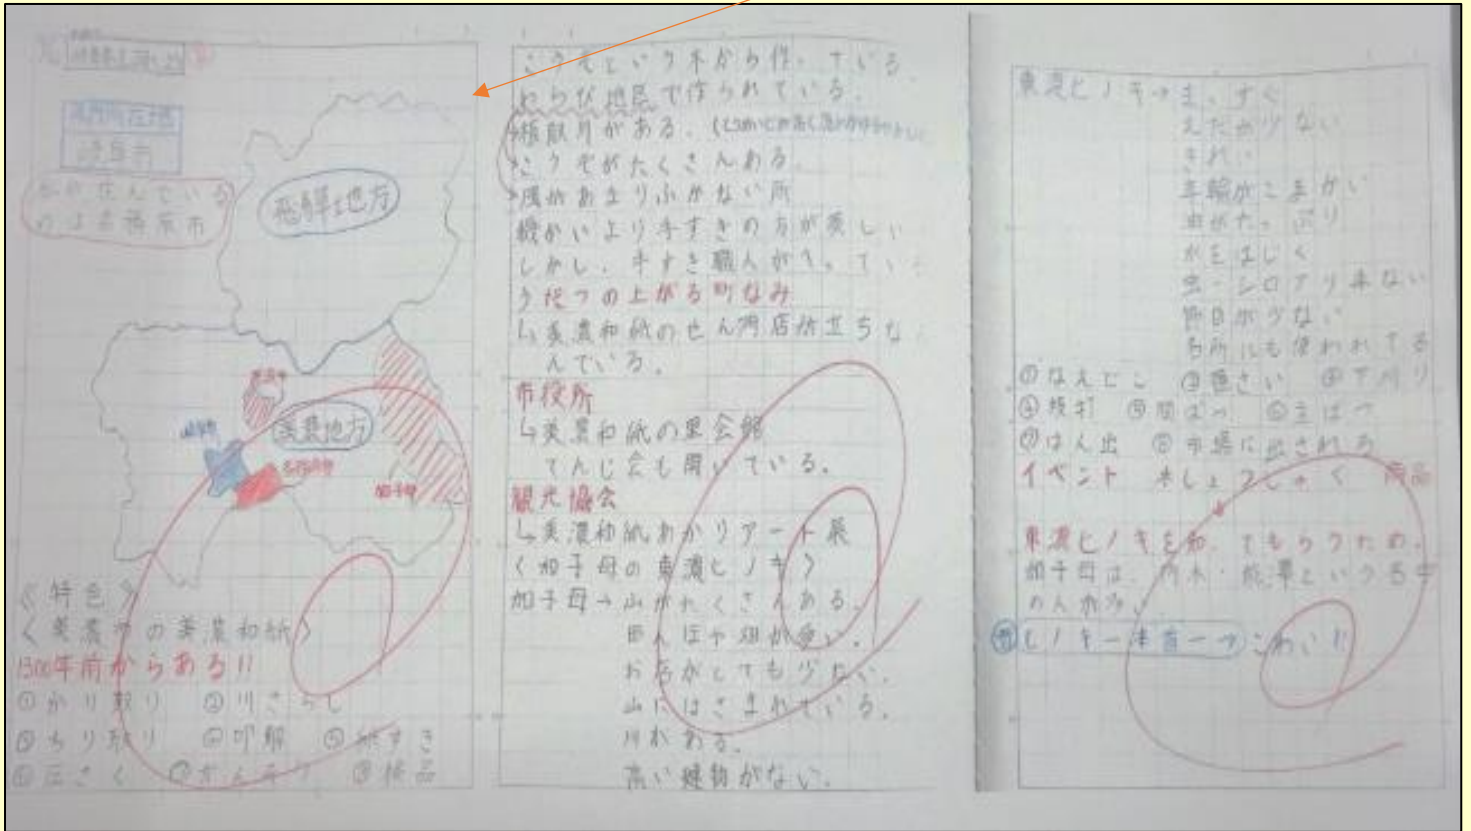 県庁所在地
岐阜市
私が住んでいる
のは各務原市
飛騨地方
美濃市
美濃地方
岐阜市
各務原市
加子母
《特色》
〈美濃市の美濃和紙〉
1300年前からある!!
①かり取り ②川さらし
③ちり取り ④叩解 ⑤紙すき
⑥圧さく ⑦かんそう ⑧検品
こうぞという木から作っている。
わらび地区で作られている。
→板取川がある。
→こうぞがたくさんある。
→風があまりふかない所
機かいより手すきの方が美しい
しかし、手すき職人がへってい
うだつの上がる町なみ
↳美濃和紙のせん門店が立ちな
んでいる。
市役所
↳美濃和紙の里会館
てんじ会も開いている。
観光協会
↳美濃和紙あかりアート展
〈加子母の東濃ヒノキ〉
加子母→山がたくさんある。
田んぼや畑が多い。
お店がとても少ない。
山にはさまれている。
川がある。
高い建物がない。
東濃ヒノキ→まっすぐ
えだが少ない
きれい
年輪がこまかい
油がたっぷり
水をはじく
虫・シロアリ来ない
節目が少ない
名所にも使われてる
④枝打 ⑤間ばつ ⑥主ばつ
⑦はん出 ⑧市場に出される
イベント 木しょうしゃく 商品
東濃ヒノキを知ってもらうため。
加子母は、内木・熊澤という名字
の人が多い。